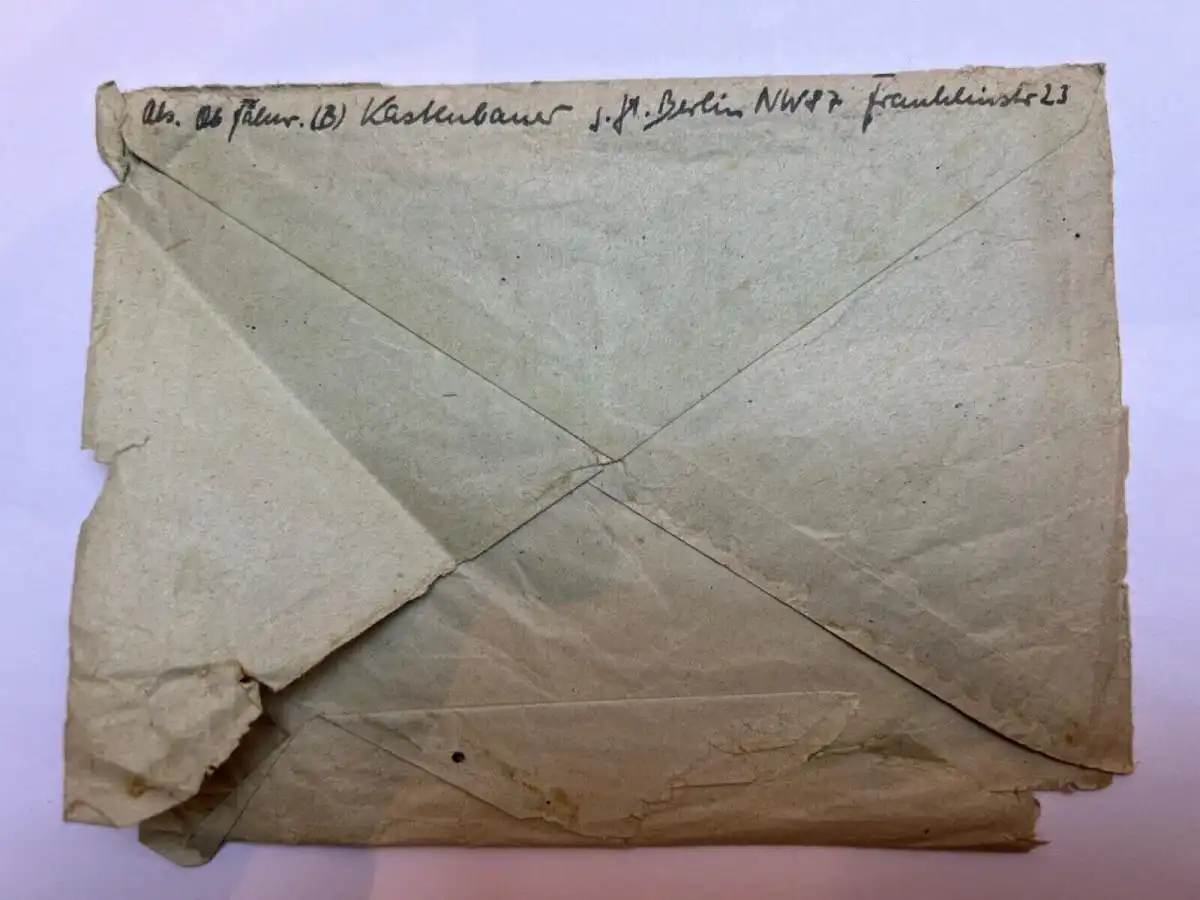 Abs. Ob Fähnr. (B) Kastenbauer z. Zt. Berlin NW87 Franklinstr 23